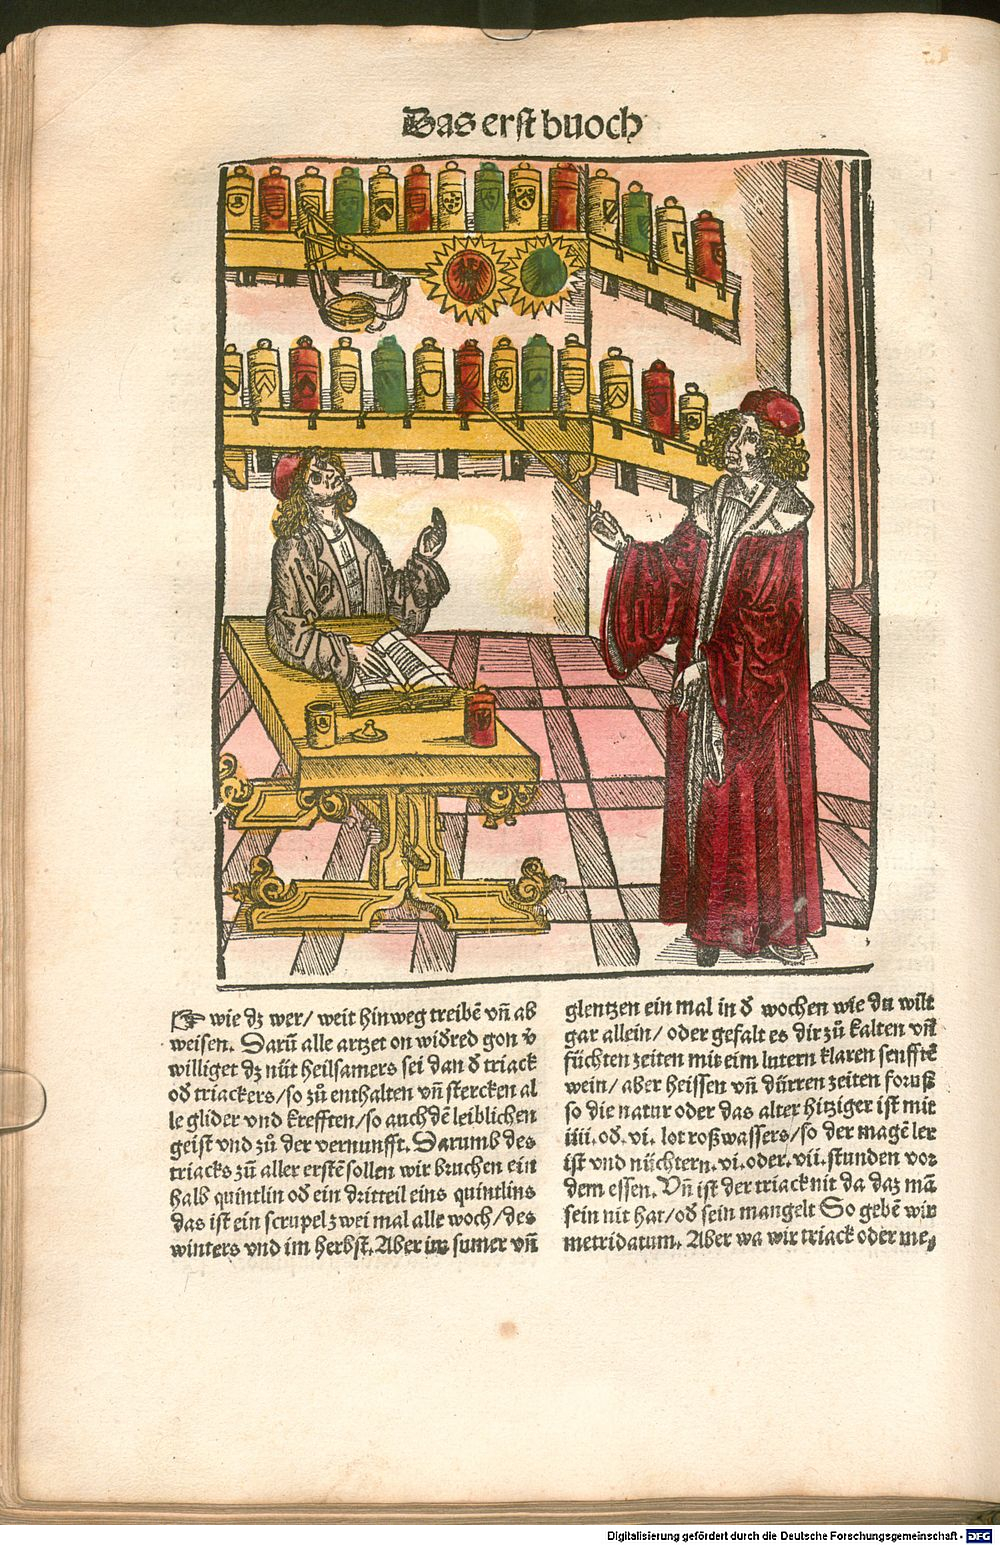 Das erst buoch
☞ wie dz wer/ weit hinweg treibē vn̄ ab
weisen. Darū alle artzet on widred gon v̄
williget dz nüt heilsamers sei dan d triack
od triackers/ so zů enthalten vn̄ stercken al
le glider vnd krefften/ so auch dē leiblichen
geist vnd zů der vernunfft. Darumb des
triacks zů aller erstē sollen wir bruchen ein
halb quintlin od ein dritteil eins quintlins
das ist ein scrupel zwei mal alle woch/ des
winters vnd im herbst. Aber im sumer vn̄
glentzen ein mal in d wochen wie du wilt
gar allein/ oder gefalt es dir zů kalten vn̄
füchten zeiten mit eim lutern klaren senfftē
wein/ aber heissen vn̄ dürren zeiten foruß
so die natur oder das alter hitziger ist mit
iiii. od. vi. lot roßwassers/ so der magē ler
ist vnd nüchtern. vi. oder. vii. stunden vor
dem essen. Vn̄ ist der triack nit da daz mā
sein nit hat/ od sein mangelt So gebē wir
metridatum. Aber wa wir triack oder me⸗
Digitalisierung gefördert durch die Deutsche Forschungsgemeinschaft - DFG